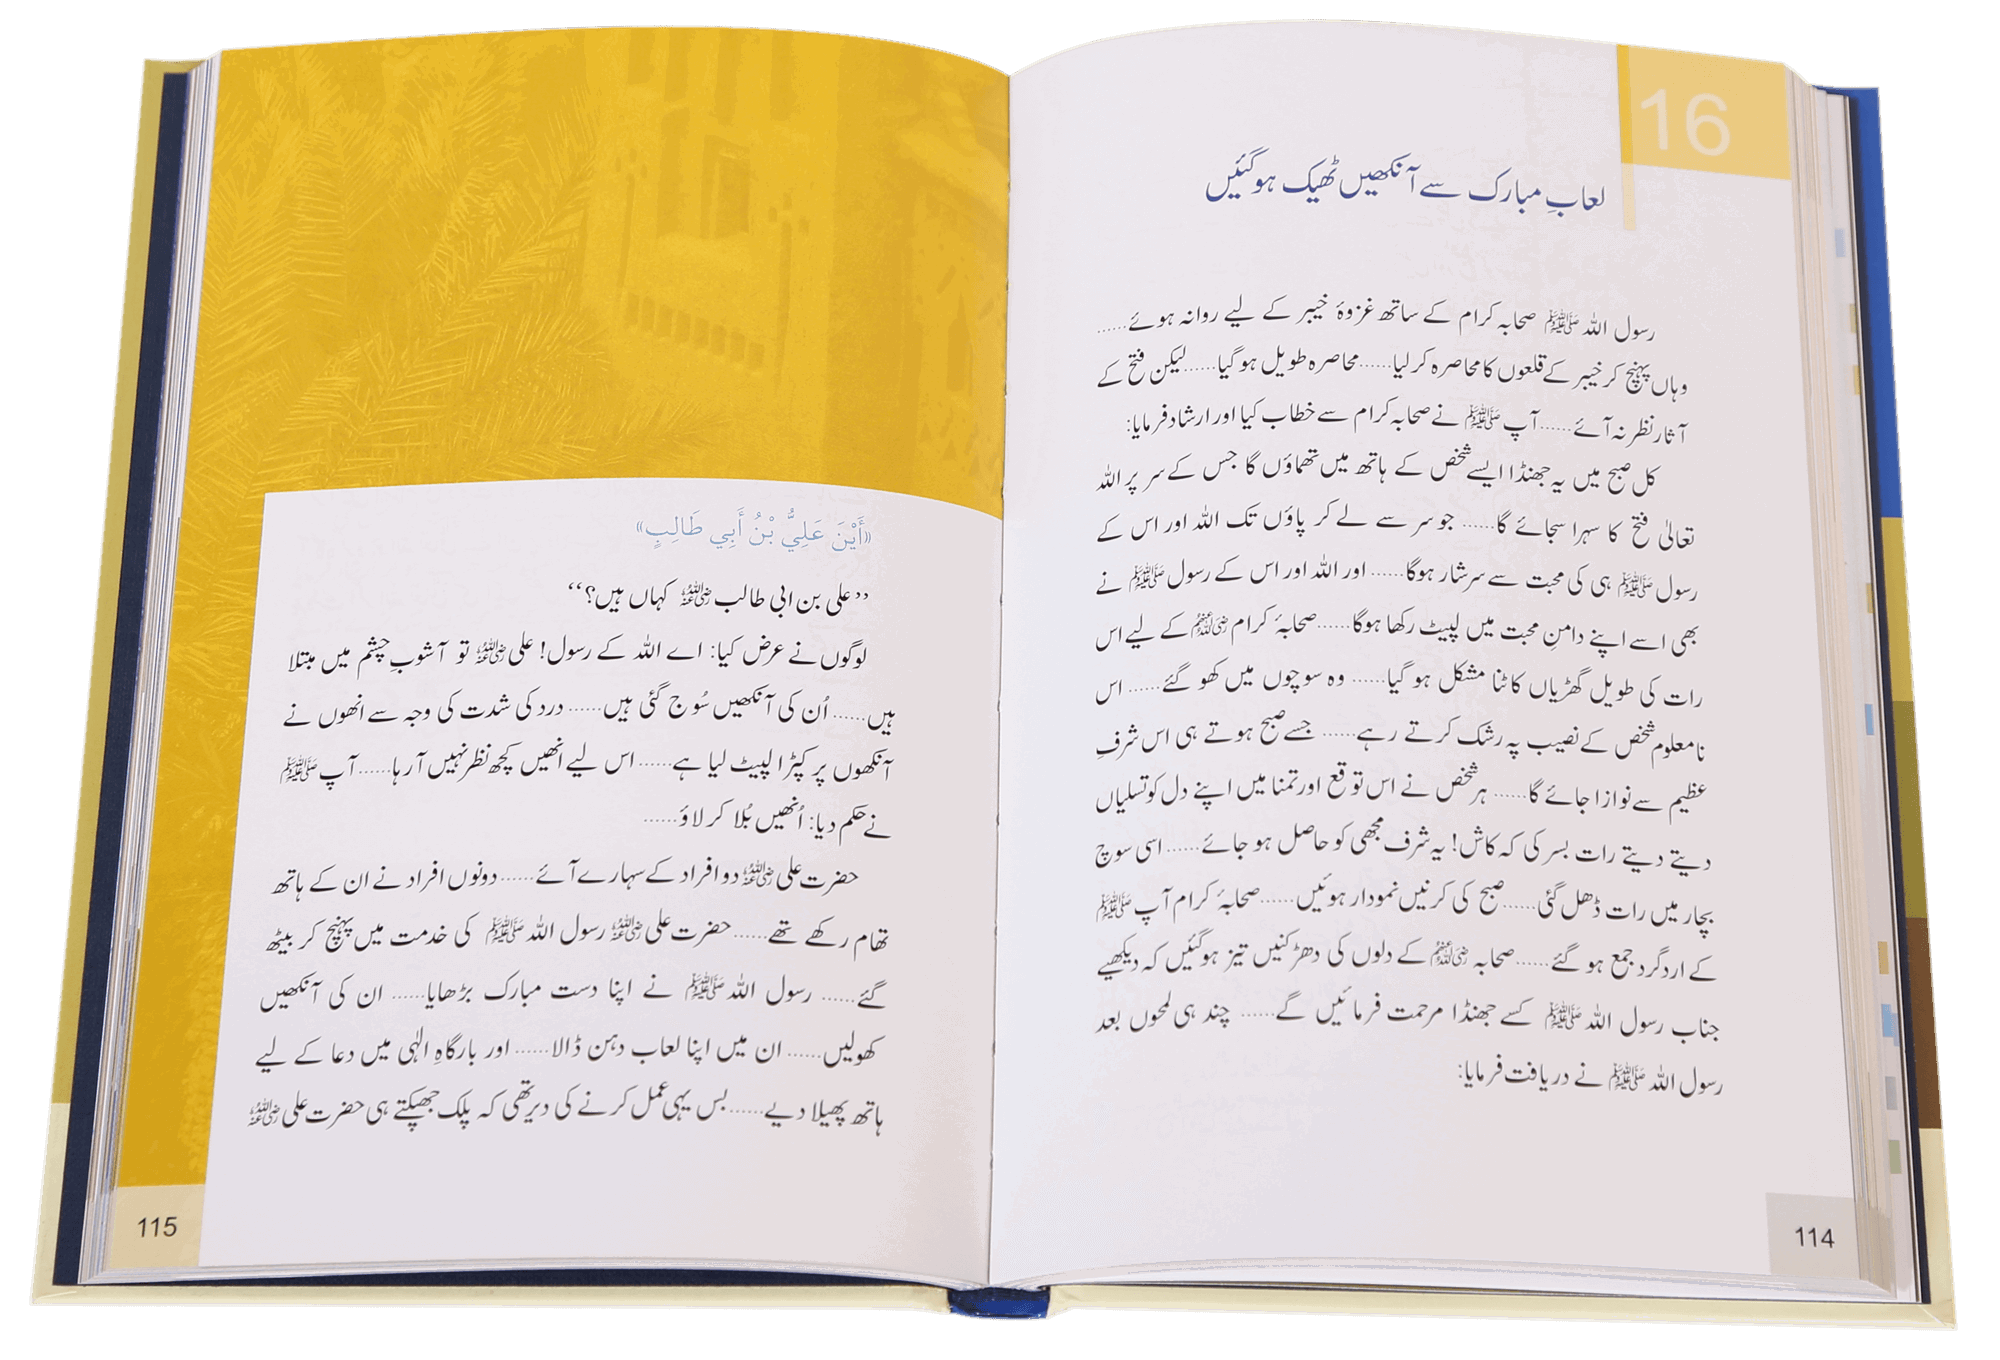 16
لعابِ مبارک سے آنکھیں ٹھیک ہوگئیں
رسول اللہ ﷺ صحابہ کرام کے ساتھ غزوۂ خیبر کے لیے روانہ ہوئے......
وہاں پہنچ کر خیبر کے قلعوں کا محاصرہ کرلیا......محاصرہ طویل ہو گیا......لیکن فتح کے
آثار نظر نہ آئے......آپ ﷺ نے صحابہ کرام سے خطاب کیا اور ارشاد فرمایا:
کل صبح میں یہ جھنڈا ایسے شخص کے ہاتھ میں تھماؤں گا جس کے سر پر اللہ
تعالیٰ فتح کا سہرا سجائے گا...... جو سر سے لے کر پاؤں تک اللہ اور اس کے
رسول ﷺ ہی کی محبت سے سرشار ہوگا...... اور اللہ اور اس کے رسول ﷺ نے
بھی اسے اپنے دامنِ محبت میں لپیٹ رکھا ہوگا......صحابۂ کرام رضی اللہ عنہم کے لیے اس
رات کی طویل گھڑیاں کاٹنا مشکل ہو گیا...... وہ سوچوں میں کھو گئے...... اس
نامعلوم شخص کے نصیب پہ رشک کرتے رہے...... جسے صبح ہوتے ہی اس شرفِ
عظیم سے نوازا جائے گا...... ہر شخص نے اس توقع اور تمنا میں اپنے دل کو تسلیاں
دیتے دیتے رات بسر کی کہ کاش! یہ شرف مجھی کو حاصل ہو جائے...... اسی سوچ
بچار میں رات ڈھل گئی......صبح کی کرنیں نمودار ہوئیں......صحابۂ کرام آپ ﷺ
کے اردگرد جمع ہو گئے......صحابہ رضی اللہ عنہم کے دلوں کی دھڑکنیں تیز ہوگئیں کہ دیکھیے
جناب رسول اللہ ﷺ کسے جھنڈا مرحمت فرمائیں گے...... چند ہی لمحوں بعد
رسول اللہ ﷺ نے دریافت فرمایا:
114
«أَيْنَ عَلِيُّ بْنُ أَبِي طَالِبٍ»
’’علی بن ابی طالب رضی اللہ عنہ کہاں ہیں؟‘‘
لوگوں نے عرض کیا: اے اللہ کے رسول! علی رضی اللہ عنہ تو آشوبِ چشم میں مبتلا
ہیں...... اُن کی آنکھیں سُوج گئی ہیں...... درد کی شدت کی وجہ سے انھوں نے
آنکھوں پر کپڑا لپیٹ لیا ہے...... اس لیے انھیں کچھ نظر نہیں آ رہا......آپ ﷺ
نے حکم دیا: اُنھیں بُلا کر لاؤ......
حضرت علی رضی اللہ عنہ دو افراد کے سہارے آئے...... دونوں افراد نے ان کے ہاتھ
تھام رکھے تھے......حضرت علی رضی اللہ عنہ رسول اللہ ﷺ کی خدمت میں پہنچ کر بیٹھ
گئے...... رسول اللہ ﷺ نے اپنا دست مبارک بڑھایا...... ان کی آنکھیں
کھولیں...... ان میں اپنا لعاب دہن ڈالا...... اور بارگاہِ الٰہی میں دعا کے لیے
ہاتھ پھیلا دیے......بس یہی عمل کرنے کی دیر تھی کہ پلک جھپکتے ہی حضرت علی رضی اللہ عنہ
115